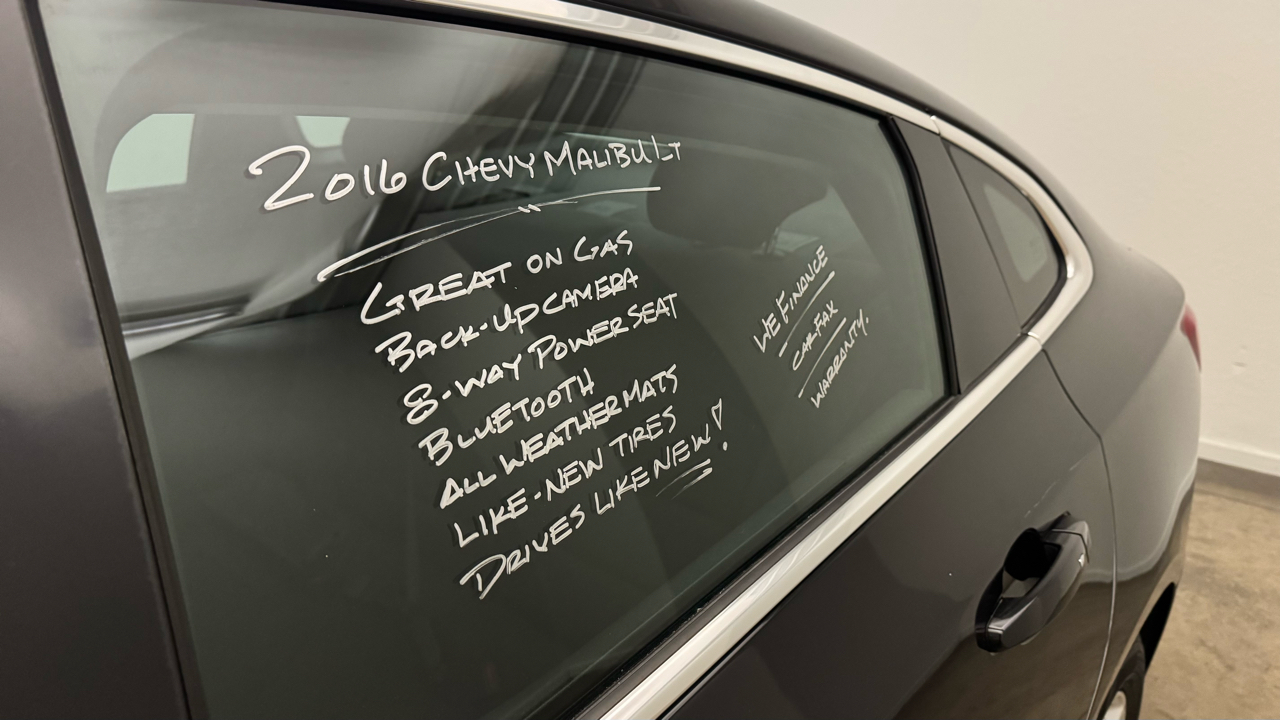 2016 CHEVY MALIBU LT
GREAT ON GAS
BACK-UP CAMERA
8-WAY POWER SEAT
BLUETOOTH
ALL WEATHER MATS
LIKE-NEW TIRES
DRIVES LIKE NEW!
WE FINANCE
CARFAX
WARRANTY.